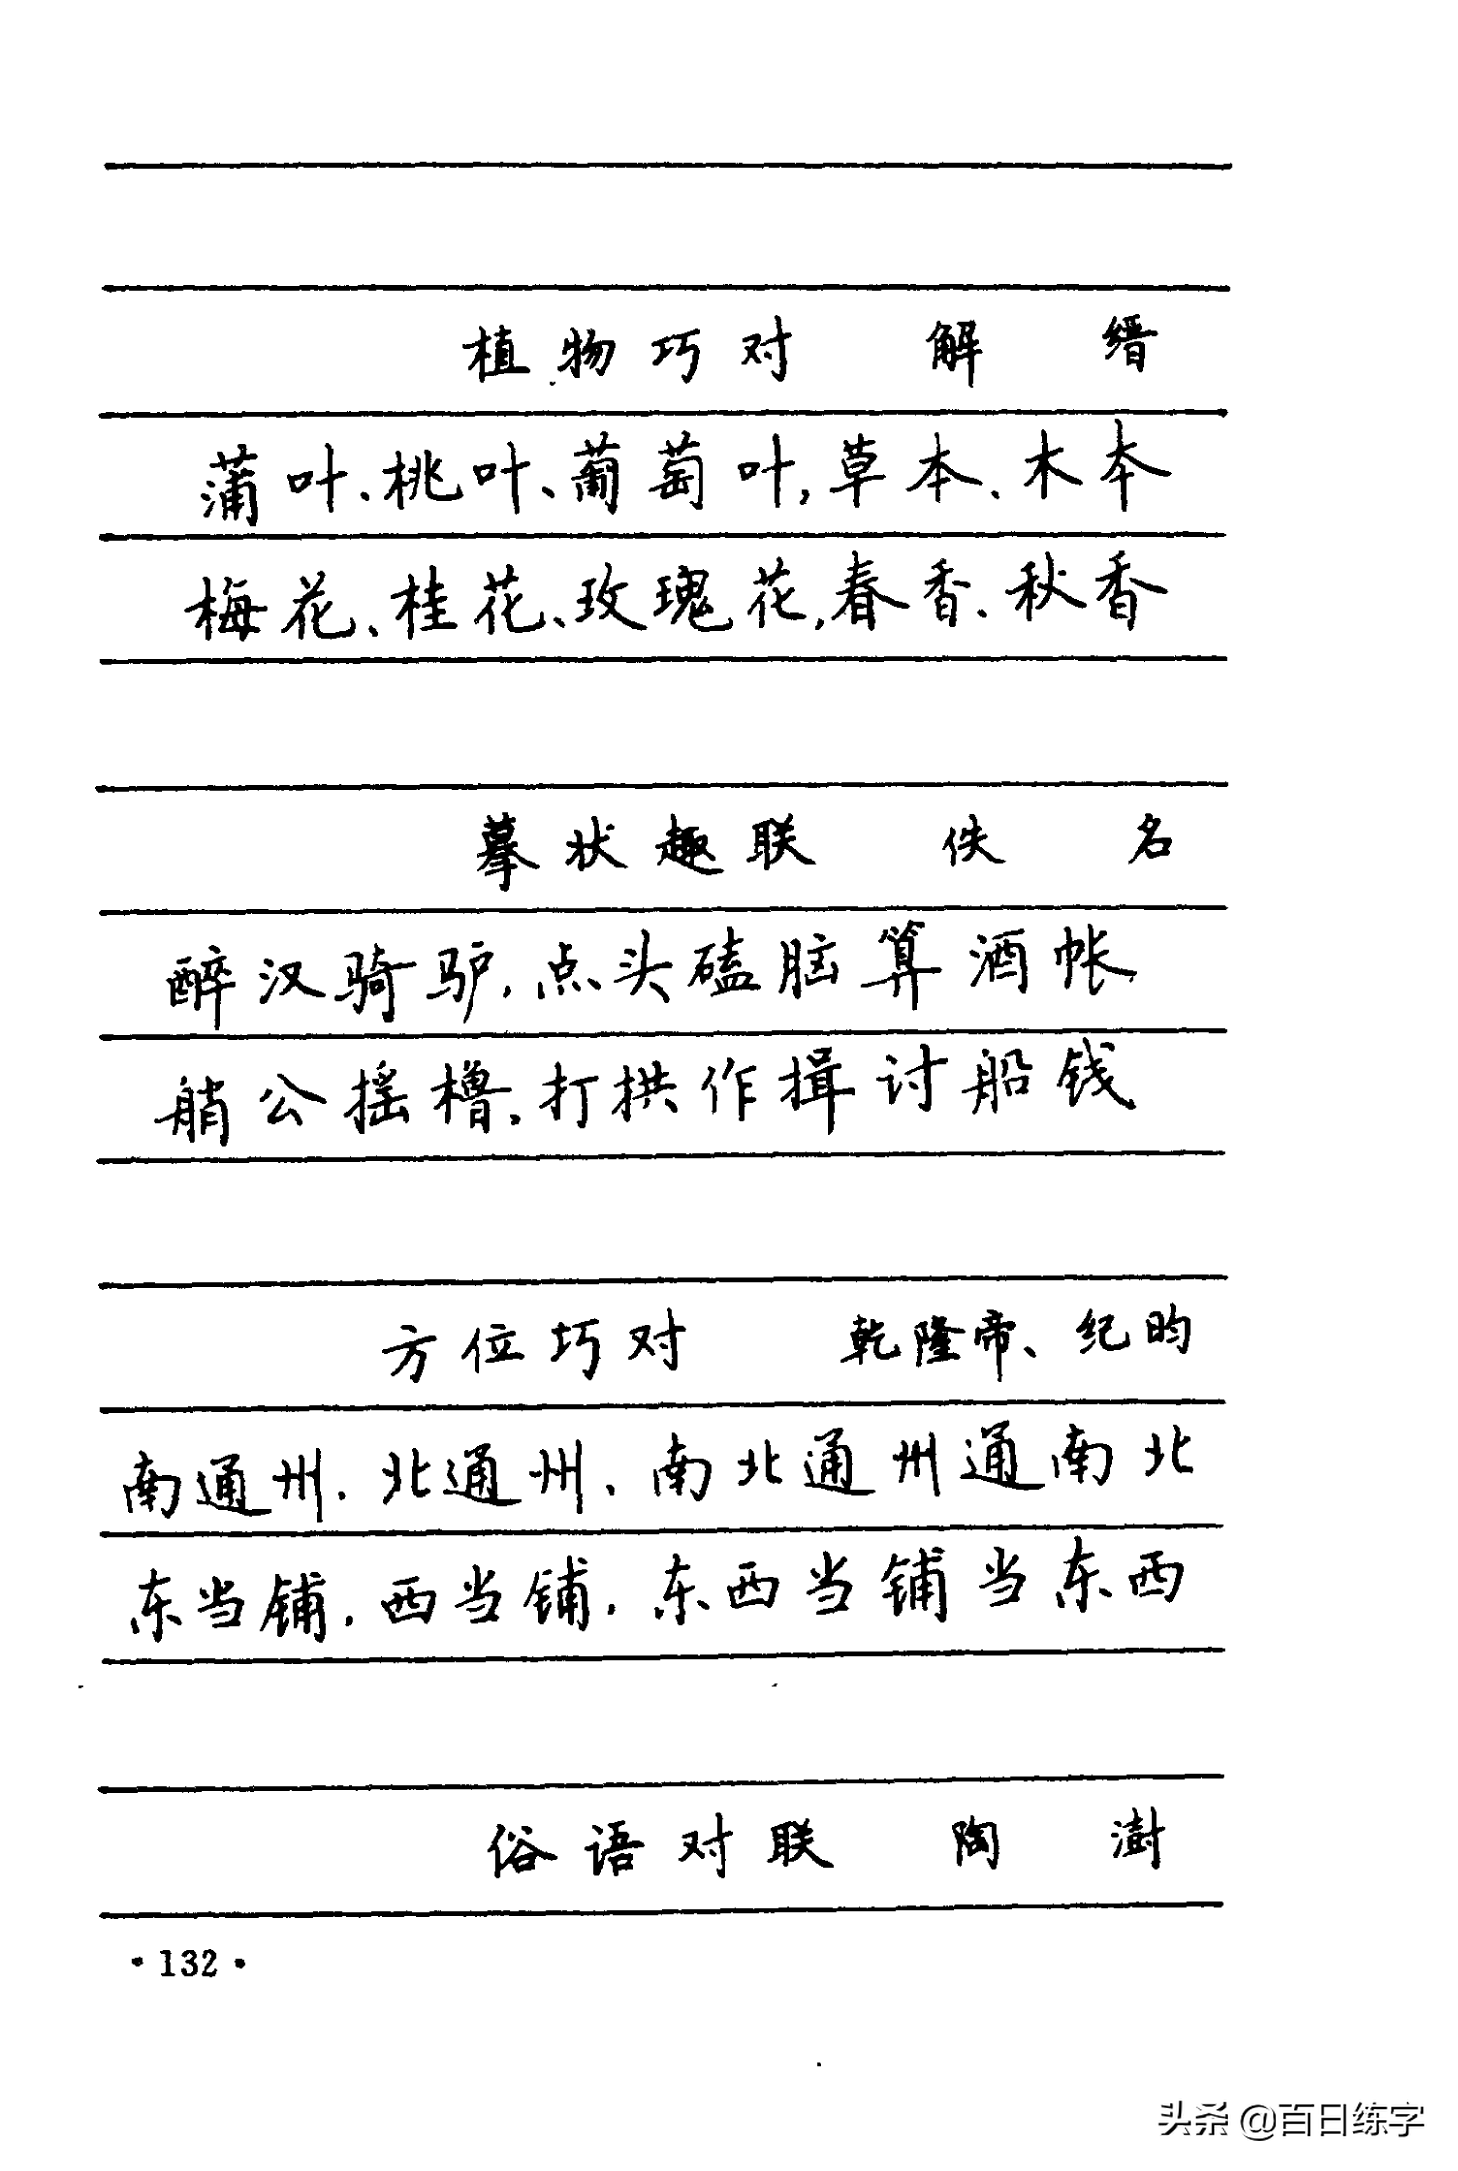 植物巧对 解缙
蒲叶、桃叶、葡萄叶,草本、木本
梅花、桂花、玫瑰花,春香、秋香
摹状趣联 佚名
醉汉骑驴,点头磕脑算酒帐
艄公摇橹,打拱作揖讨船钱
方位巧对 乾隆帝、纪昀
南通州,北通州,南北通州通南北
东当铺,西当铺,东西当铺当东西
俗语对联 陶澍
·132·
头条 @百日练字